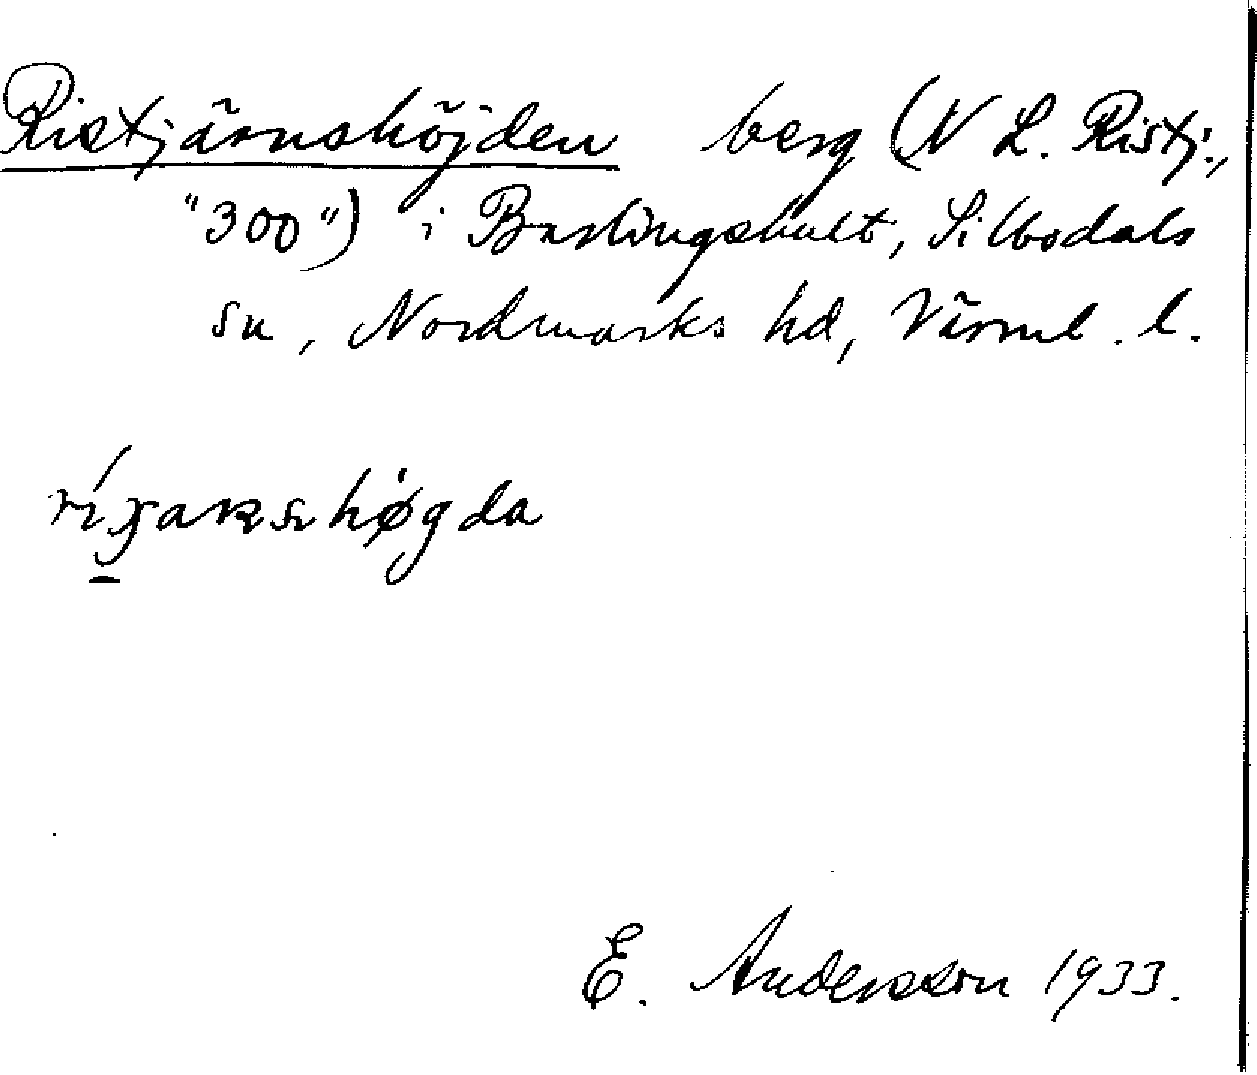 Ristjärnshöjden berg (N L. Ristj.,
"300") i Bärlingshult, Silbodals
sn, Nordmarks hd, Värml. l.
högda
E. Andersson 1933.